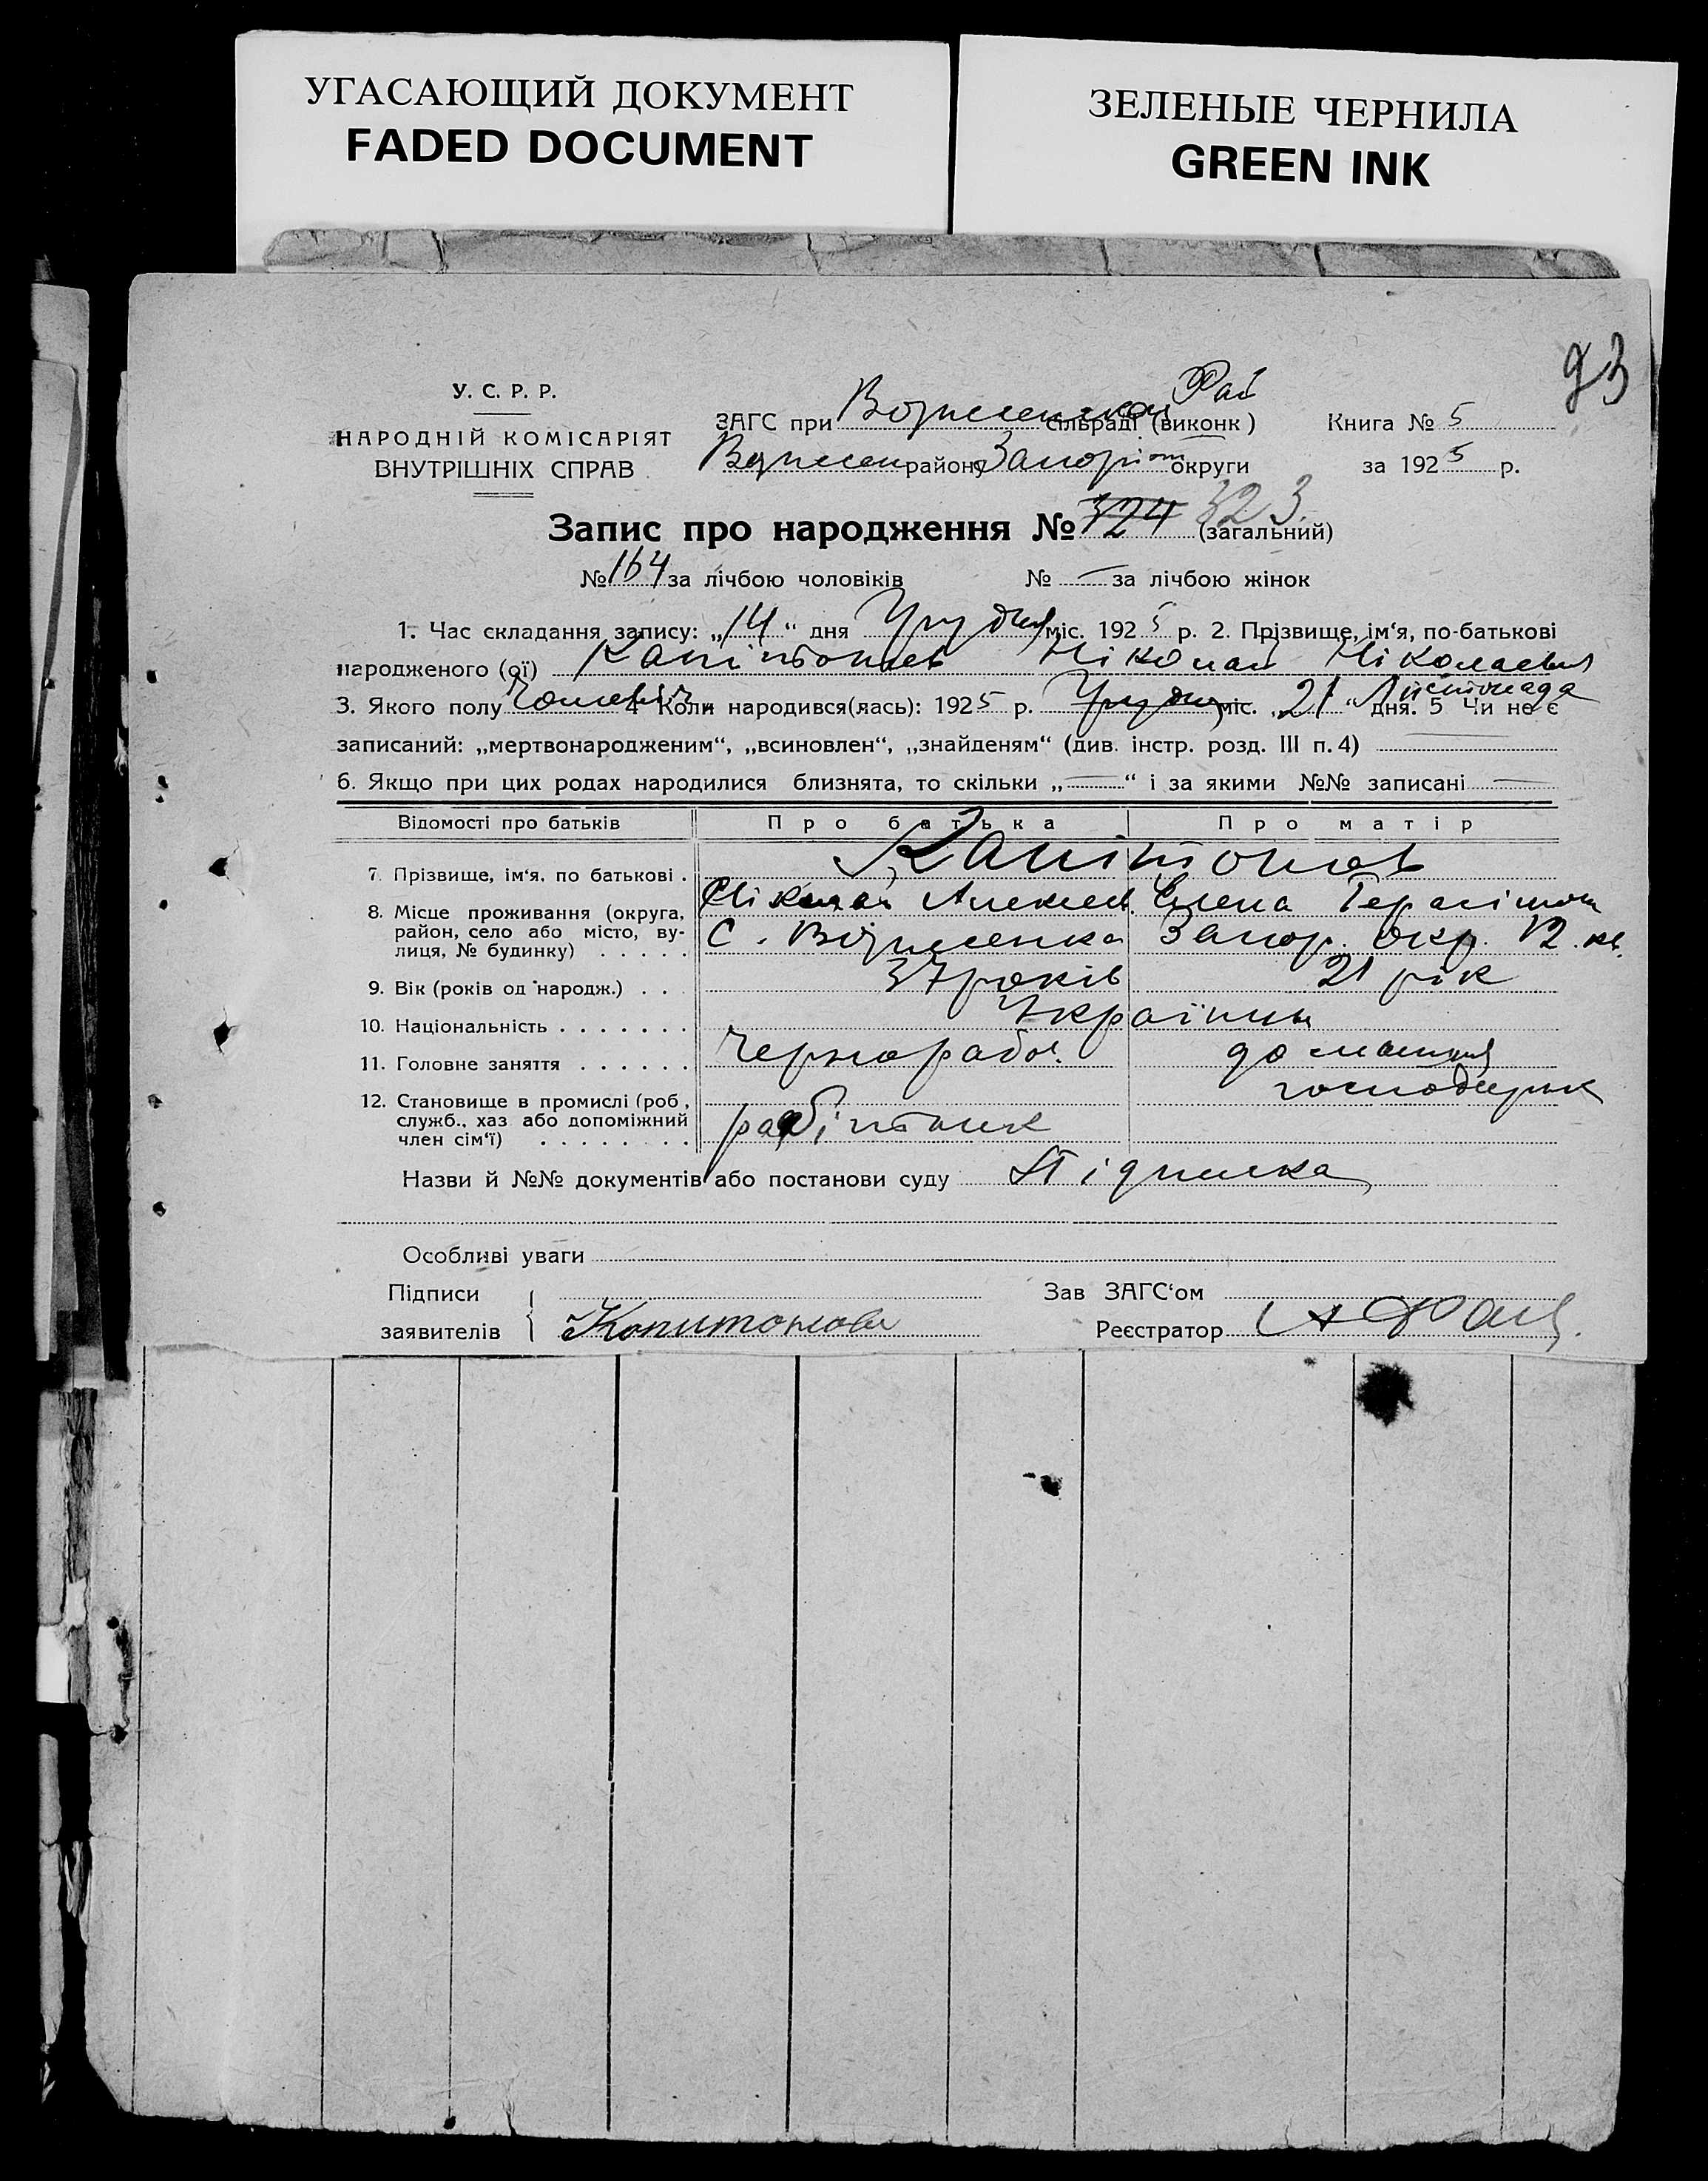 УГАСАЮЩИЙ ДОКУМЕНТ
FADED DOCUMENT
ЗЕЛЕНЫЕ ЧЕРНИЛА
GREEN INK
93
У. С. Р. Р.
НАРОДНІЙ КОМІСАРІЯТ
ВНУТРІШНІХ СПРАВ
Рай
ЗАГС при сільраді (виконк) Книга № 5
Вознесен району Запоріж округи за 1925 р.
Запис про народження № 324 323 (загальний)
№ 164 за лічбою чоловіків № — за лічбою жінок
1. Час складання запису: „14“ дня Грудня міс. 1925 р. 2. Прізвище, ім‘я, по-батькові
народженого (ої) Капітонов Ніколай Ніколаевич
3. Якого полу 4 Коли народився(лась): 1925 р. Грудня міс. „21“ Листопада дня. 5 Чи не є
записаний: „мертвонародженим“, „всиновлен“, „знайденям“ (див. інстр. розд. III п. 4) —
6. Якщо при цих родах народилися близнята, то скільки „—“ і за якими №№ записані —
Відомості про батьків Про батька Про матір
7. Прізвище, ім‘я, по батькові . Капітонов
Ніколай Алексеев. Елена Герасімовн
8. Місце проживання (округа, район, село або місто, вулиця, № будинку) . . . . . С. Вознесенка Запор. окр. 12 кв.
9. Вік (років од народж.) . . . 37 років 21 рік
10. Національність . . . . . . . Українци
11. Головне заняття . . . . . . Чернорабоч. домашня
господарк
12. Становище в промислі (роб, служб., хаз або допоміжний член сім‘ї) . . . . . . . . робітник
Назви й №№ документів або постанови суду Підписка
Особливі уваги
Підписи Зав ЗАГС‘ом
заявителів Капитонова Реєстратор